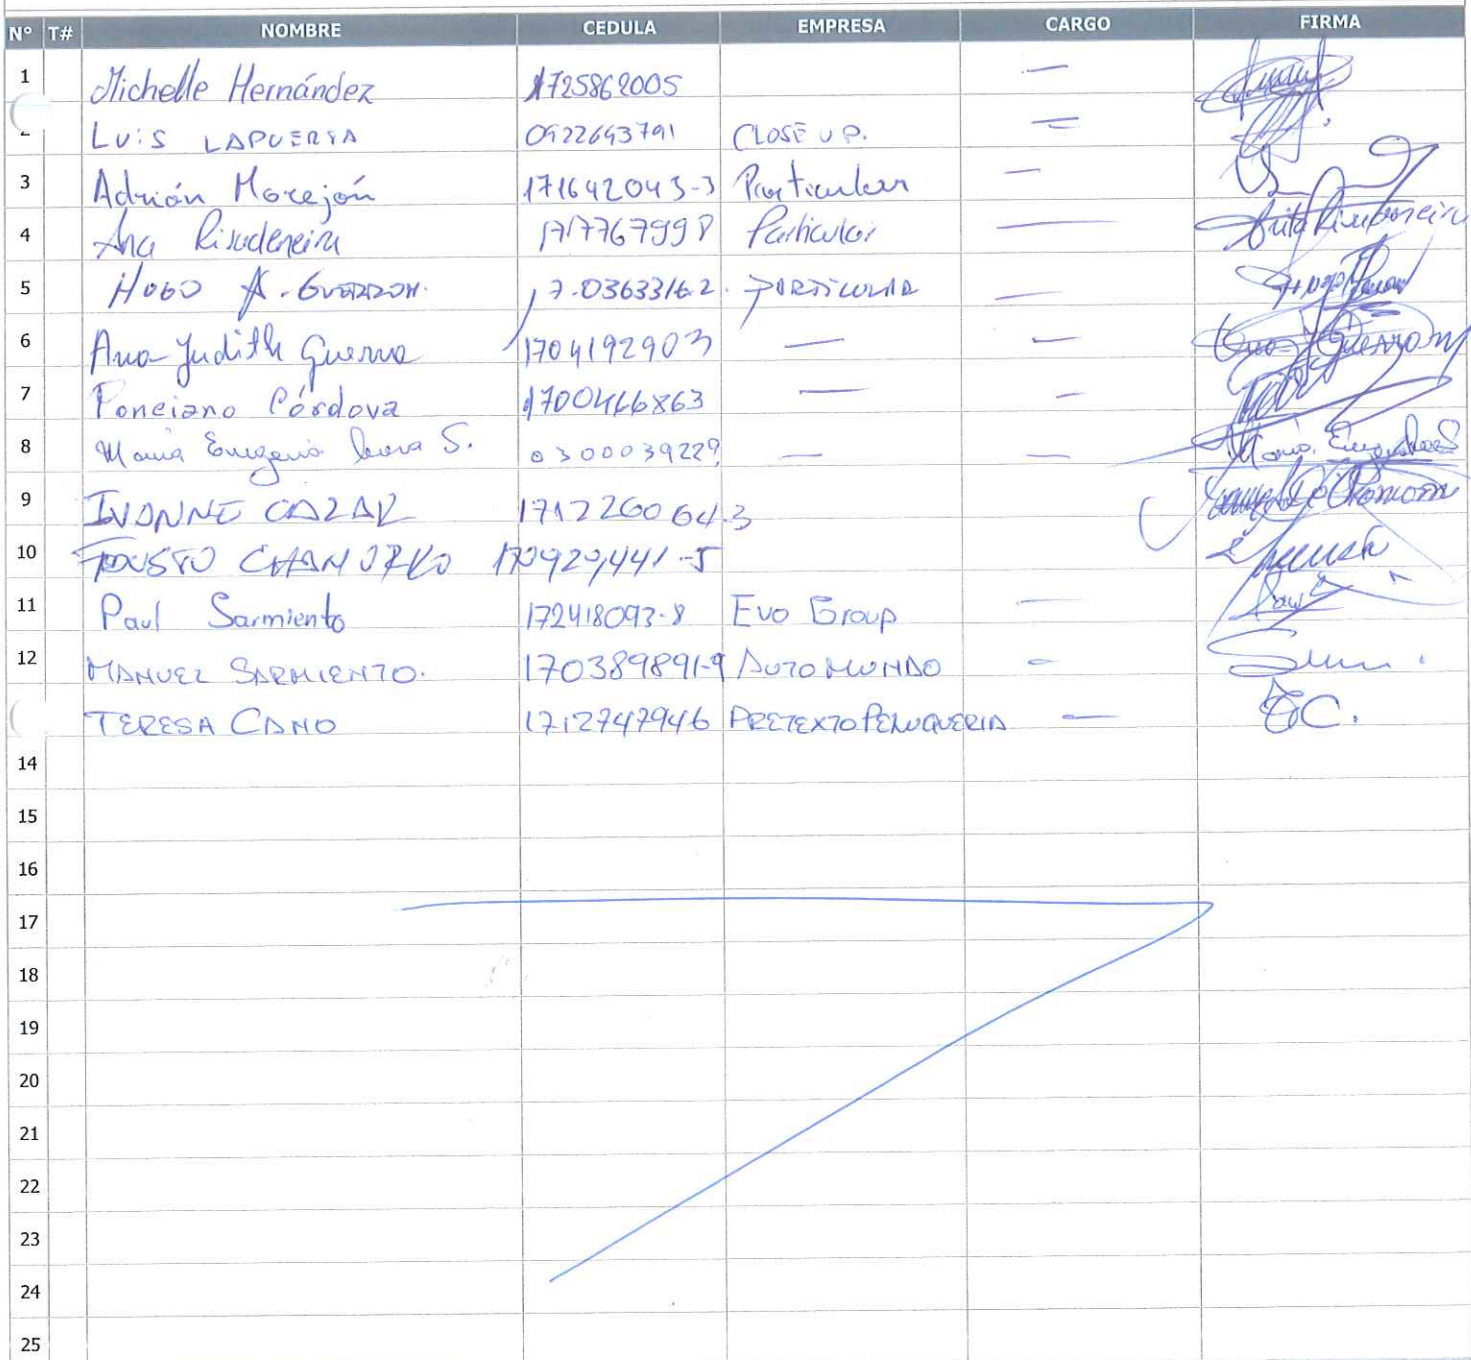 N° T# NOMBRE CEDULA EMPRESA CARGO FIRMA
1 Michelle Hernández 1725862005 —
LUIS LAPUERTA 0922693791 CLOSE UP. —
3 Adrián Morejón 171642043-3 Particular —
4 Ana Rivadeneira 1717767998 Particular —
5 HUGO A. GUERRON. 17-0363316.2. PARTICULAR —
6 Ana Judith Guerra 1704192903 — —
7 Ponciano Córdova 1700466863 — —
8 María Eugenia S. 0300039229 — —
9 IVONNE CAZAR 171226064.3
10 FAUSTO
11 Paul Sarmiento 172418093-8 Evo Group —
12 MANUEL SARMIENTO. 170389891-9 AUTOMUNDO —
TERESA CANO 1712747946 PRETEXTO PELUQUERIA — TC.
14
15
16
17
18
19
20
21
22
23
24
25